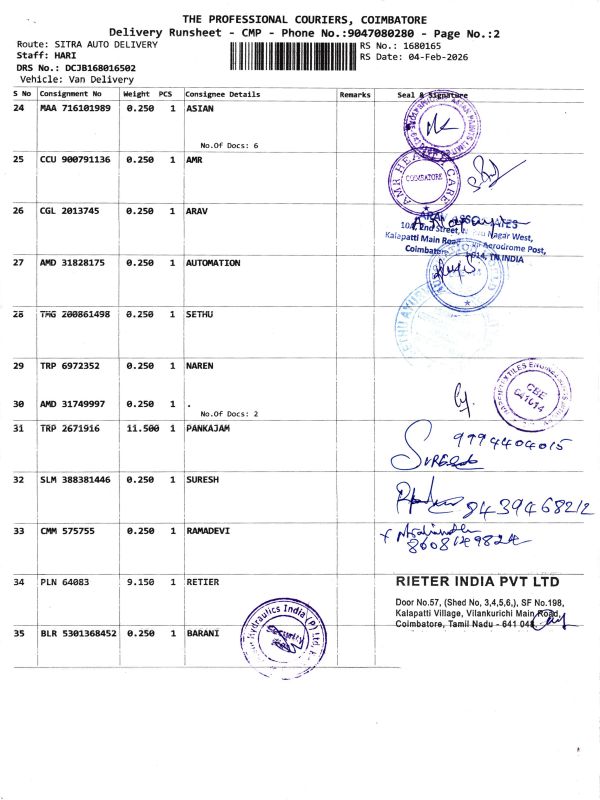 THE PROFESSIONAL COURIERS, COIMBATORE
Delivery Runsheet - CMP - Phone No.:9047080280 - Page No.:2
Route: SITRA AUTO DELIVERY
RS No.: 1680165
Staff: HARI
RS Date: 04-Feb-2026
DRS No.: DCJB168016502
Vehicle: Van Delivery
S No Consignment No Weight PCS Consignee Details Remarks Seal & Signature
24 MAA 716101989 0.250 1 ASIAN
No.Of Docs: 6
25 CCU 900791136 0.250 1 AMR
AMR HEALTH CARE
COIMBATORE
26 CGL 2013745 0.250 1 ARAV
Nagar West,
Kalapatti Main Road
Aerodrome Post,
Coimbatore
014, TN.INDIA
27 AMD 31828175 0.250 1 AUTOMATION
28 TMG 200861498 0.250 1 SETHU
29 TRP 6972352 0.250 1 NAREN
CBE
641014
30 AMD 31749997 0.250 1 .
No.Of Docs: 2
31 TRP 2671916 11.500 1 PANKAJAM
9994404015
32 SLM 388381446 0.250 1 SURESH
8439468212
33 CMM 575755 0.250 1 RAMADEVI
34 PLN 64083 9.150 1 RETIER
RIETER INDIA PVT LTD
Door No.57, (Shed No, 3,4,5,6,), SF No.198,
Kalapatti Village, Vilankurichi Main Road,
Coimbatore, Tamil Nadu - 641 048
35 BLR 5301368452 0.250 1 BARANI
Hydraulics India (P) Ltd.
Security